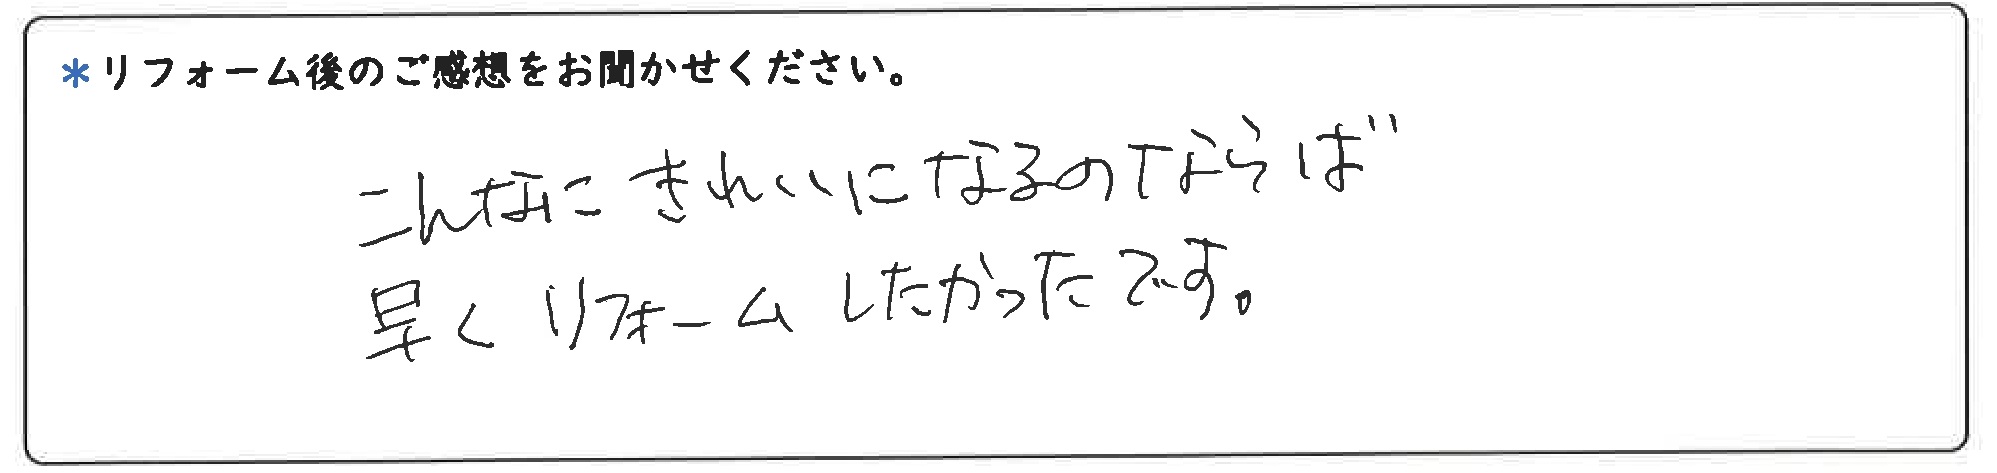 *リフォーム後のご感想をお聞かせください。
こんなにきれいになるのならば
早くリフォームしたかったです。